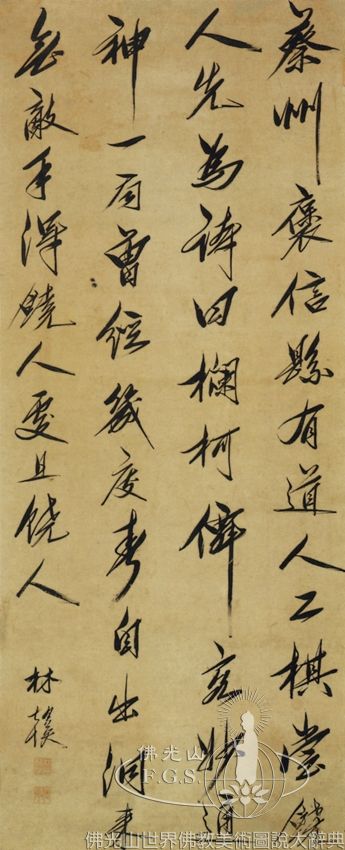 蔡州褒信縣有道人工棋嘗饒
人先為詩曰欄柯僊客妙通
神一局曾經幾度春自出洞來
無敵手得饒人處且饒人
林
佛光山
F.G.S.
佛光山世界佛教美術圖說大辭典